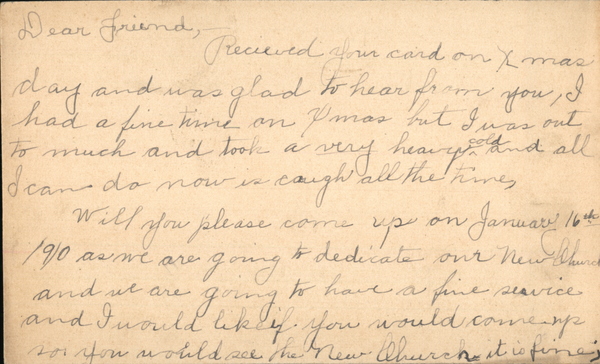 Dear friend,-
Recieved your card on Xmas
day and was glad to hear from you, I
had a fine time on Xmas but I was out
to much and took a very heavy cold and all
I can do now is caugh all the time,
Will you please come up on January 16th
1910 as we are going to dedicate our New Church
and we are going to have a fine service
and I would like if you would come up
so you would see the New Church it is fine;